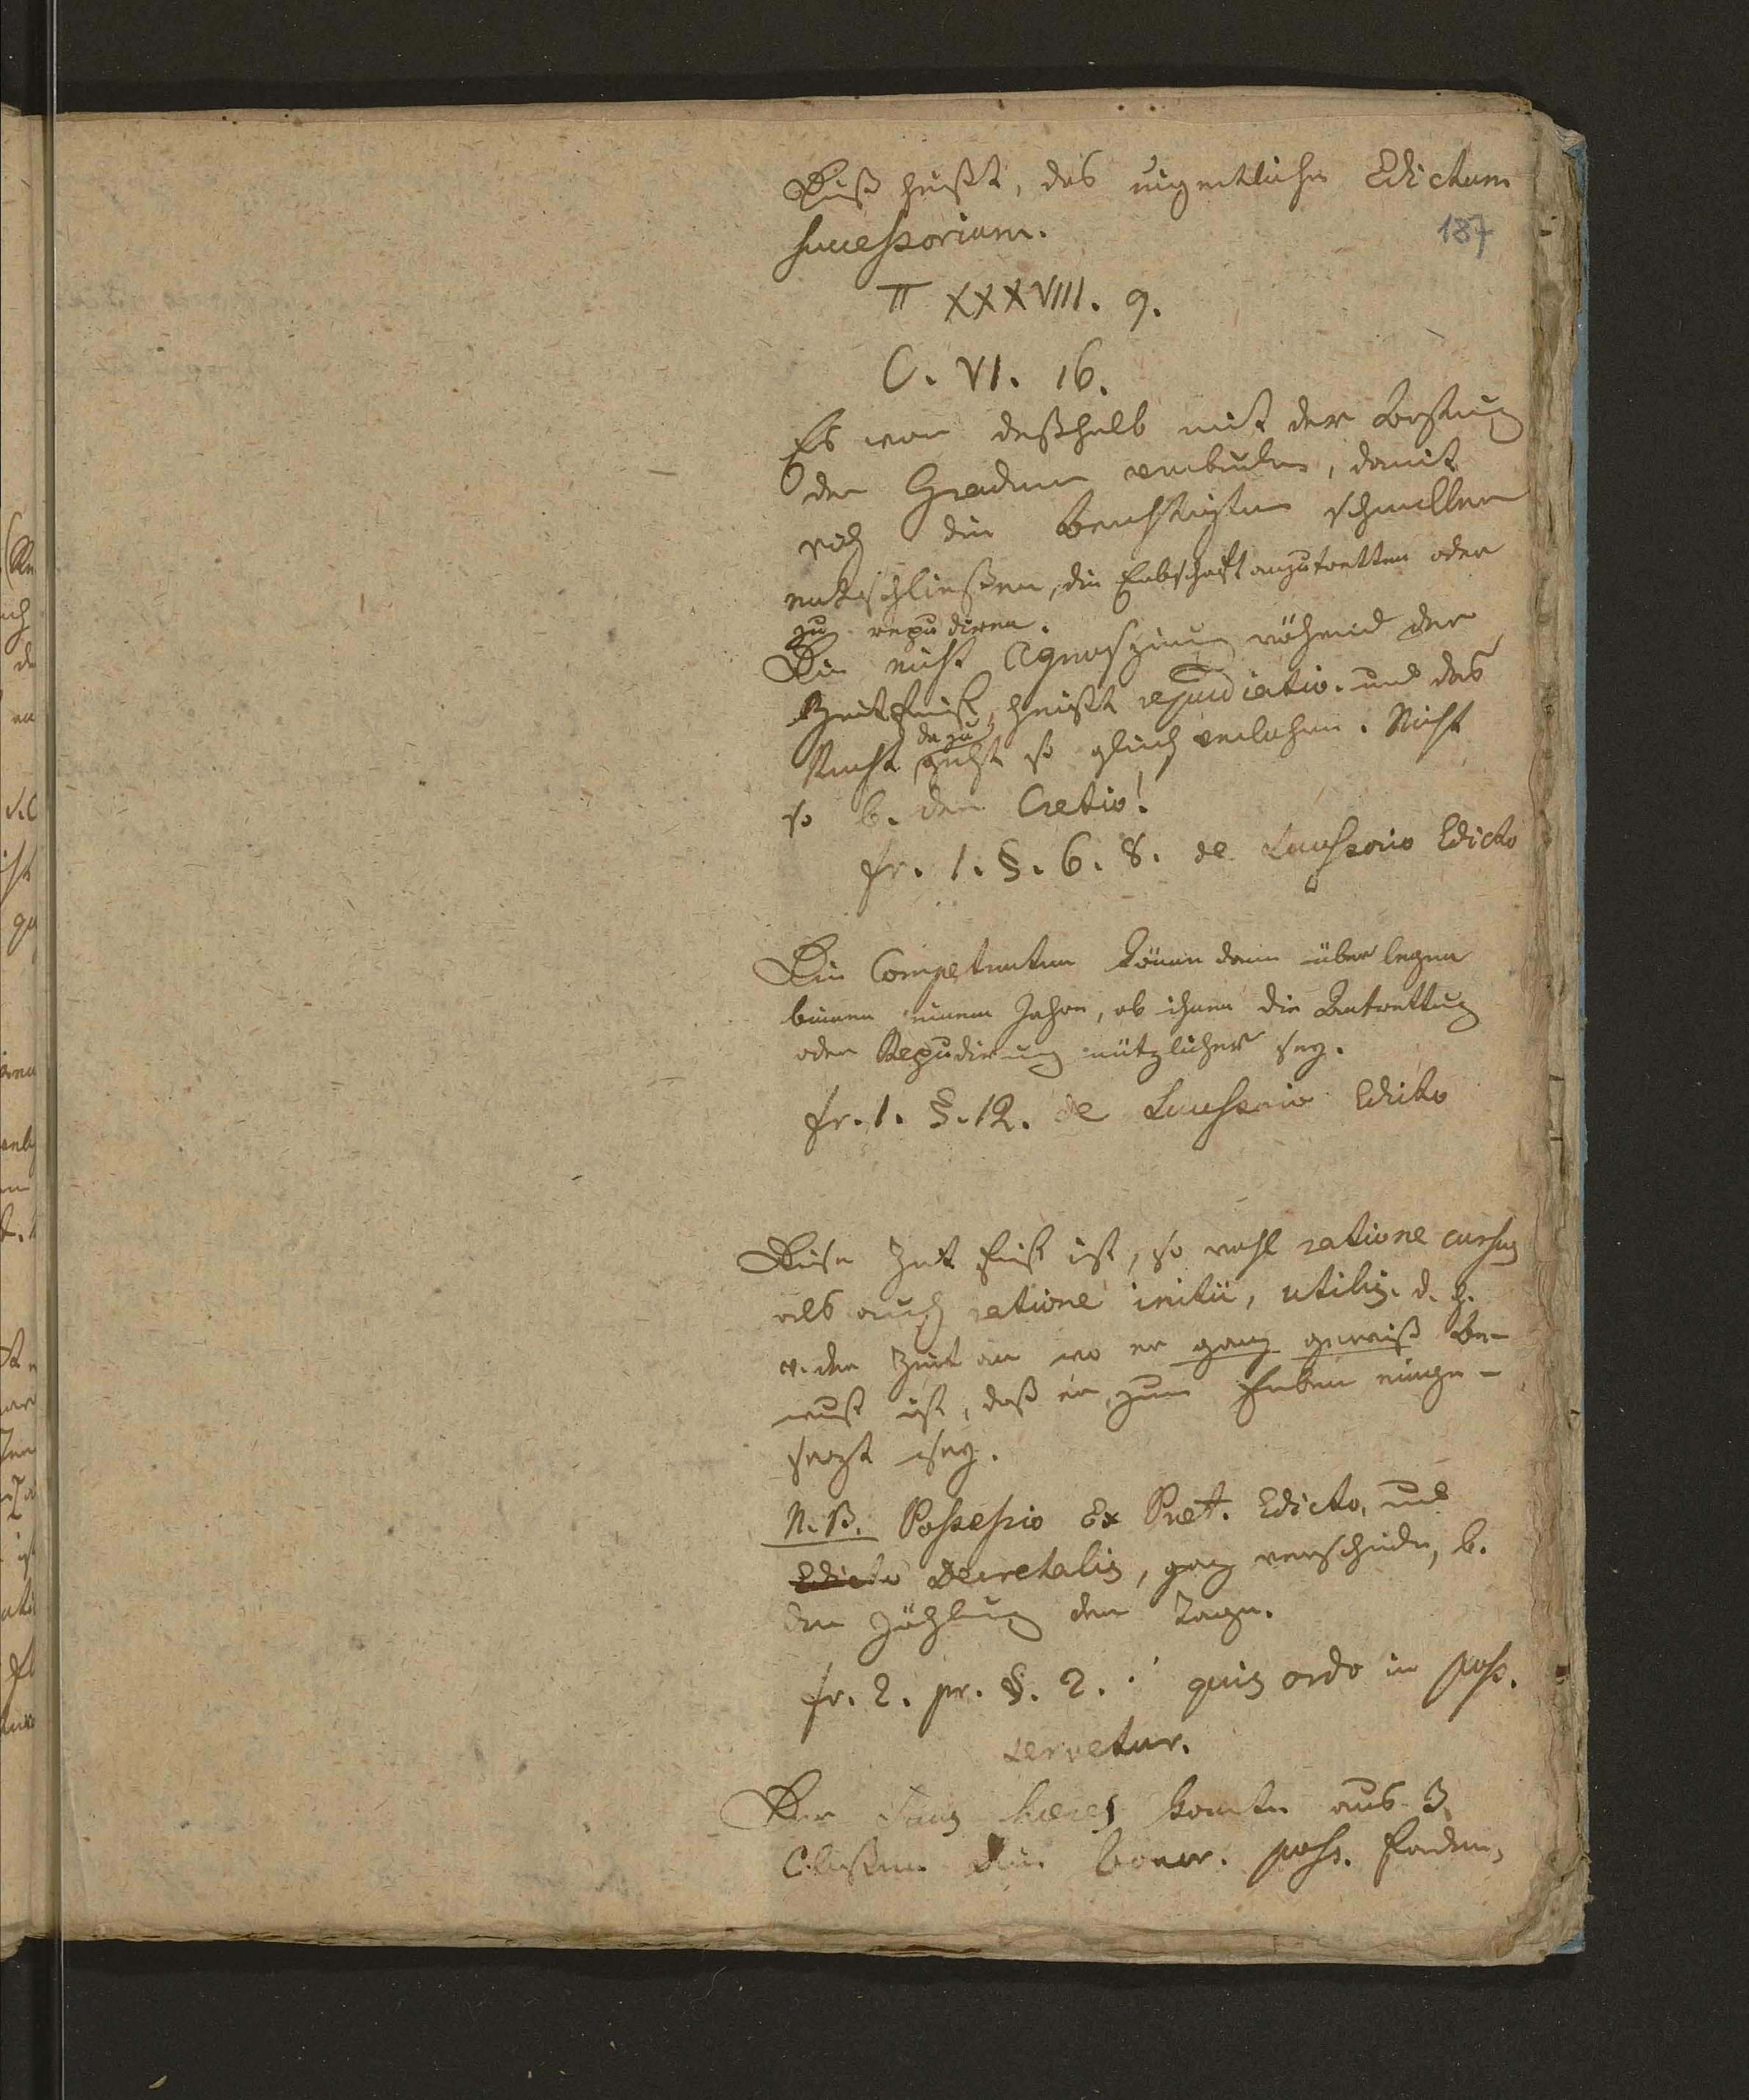 Dieß heißt, das eigentliche Edictum
successorium.
187
π XXXVIII. 9.
C. VI. 16.
Es war deßhalb mit der
der Graden verbunden, damit
sich die Berechtigten schneller
entschließen, die Erbschaft anzutretten oder
zu repudiren.
Die nicht Agnoszirung während der
Zeitfrist, heißt repudiatio. und das
Recht dazu geht so gleich verlohren. Nicht
so b. der Cretio!
fr. 1. §. 6. 8. de Successorio Edicto
Die Competenten können dann überlegen
binnen einem Jahre, ob ihnen die Antrettung
oder Repudirung nützlicher sey.
fr. 1. §. 12. de Successorio Edicto
Diese Zeit frist ist, so wohl ratione cursus
als auch ratione initii, utilis. d. h.
v. der Zeit an wo er ganz gewiß be-
wust ist, daß er zum Erben einge-
sezt sey.
N.B. Possessio Ex Praet. Edicto, und
Edicto Decretalis, ganz verschieden, b.
der Zählung der Tage.
fr. 2. pr. §. 2. quis ordo in poss.
servetur.
Der Suus haeres konnte aus 3
Classen die bonor. poss. fordern,